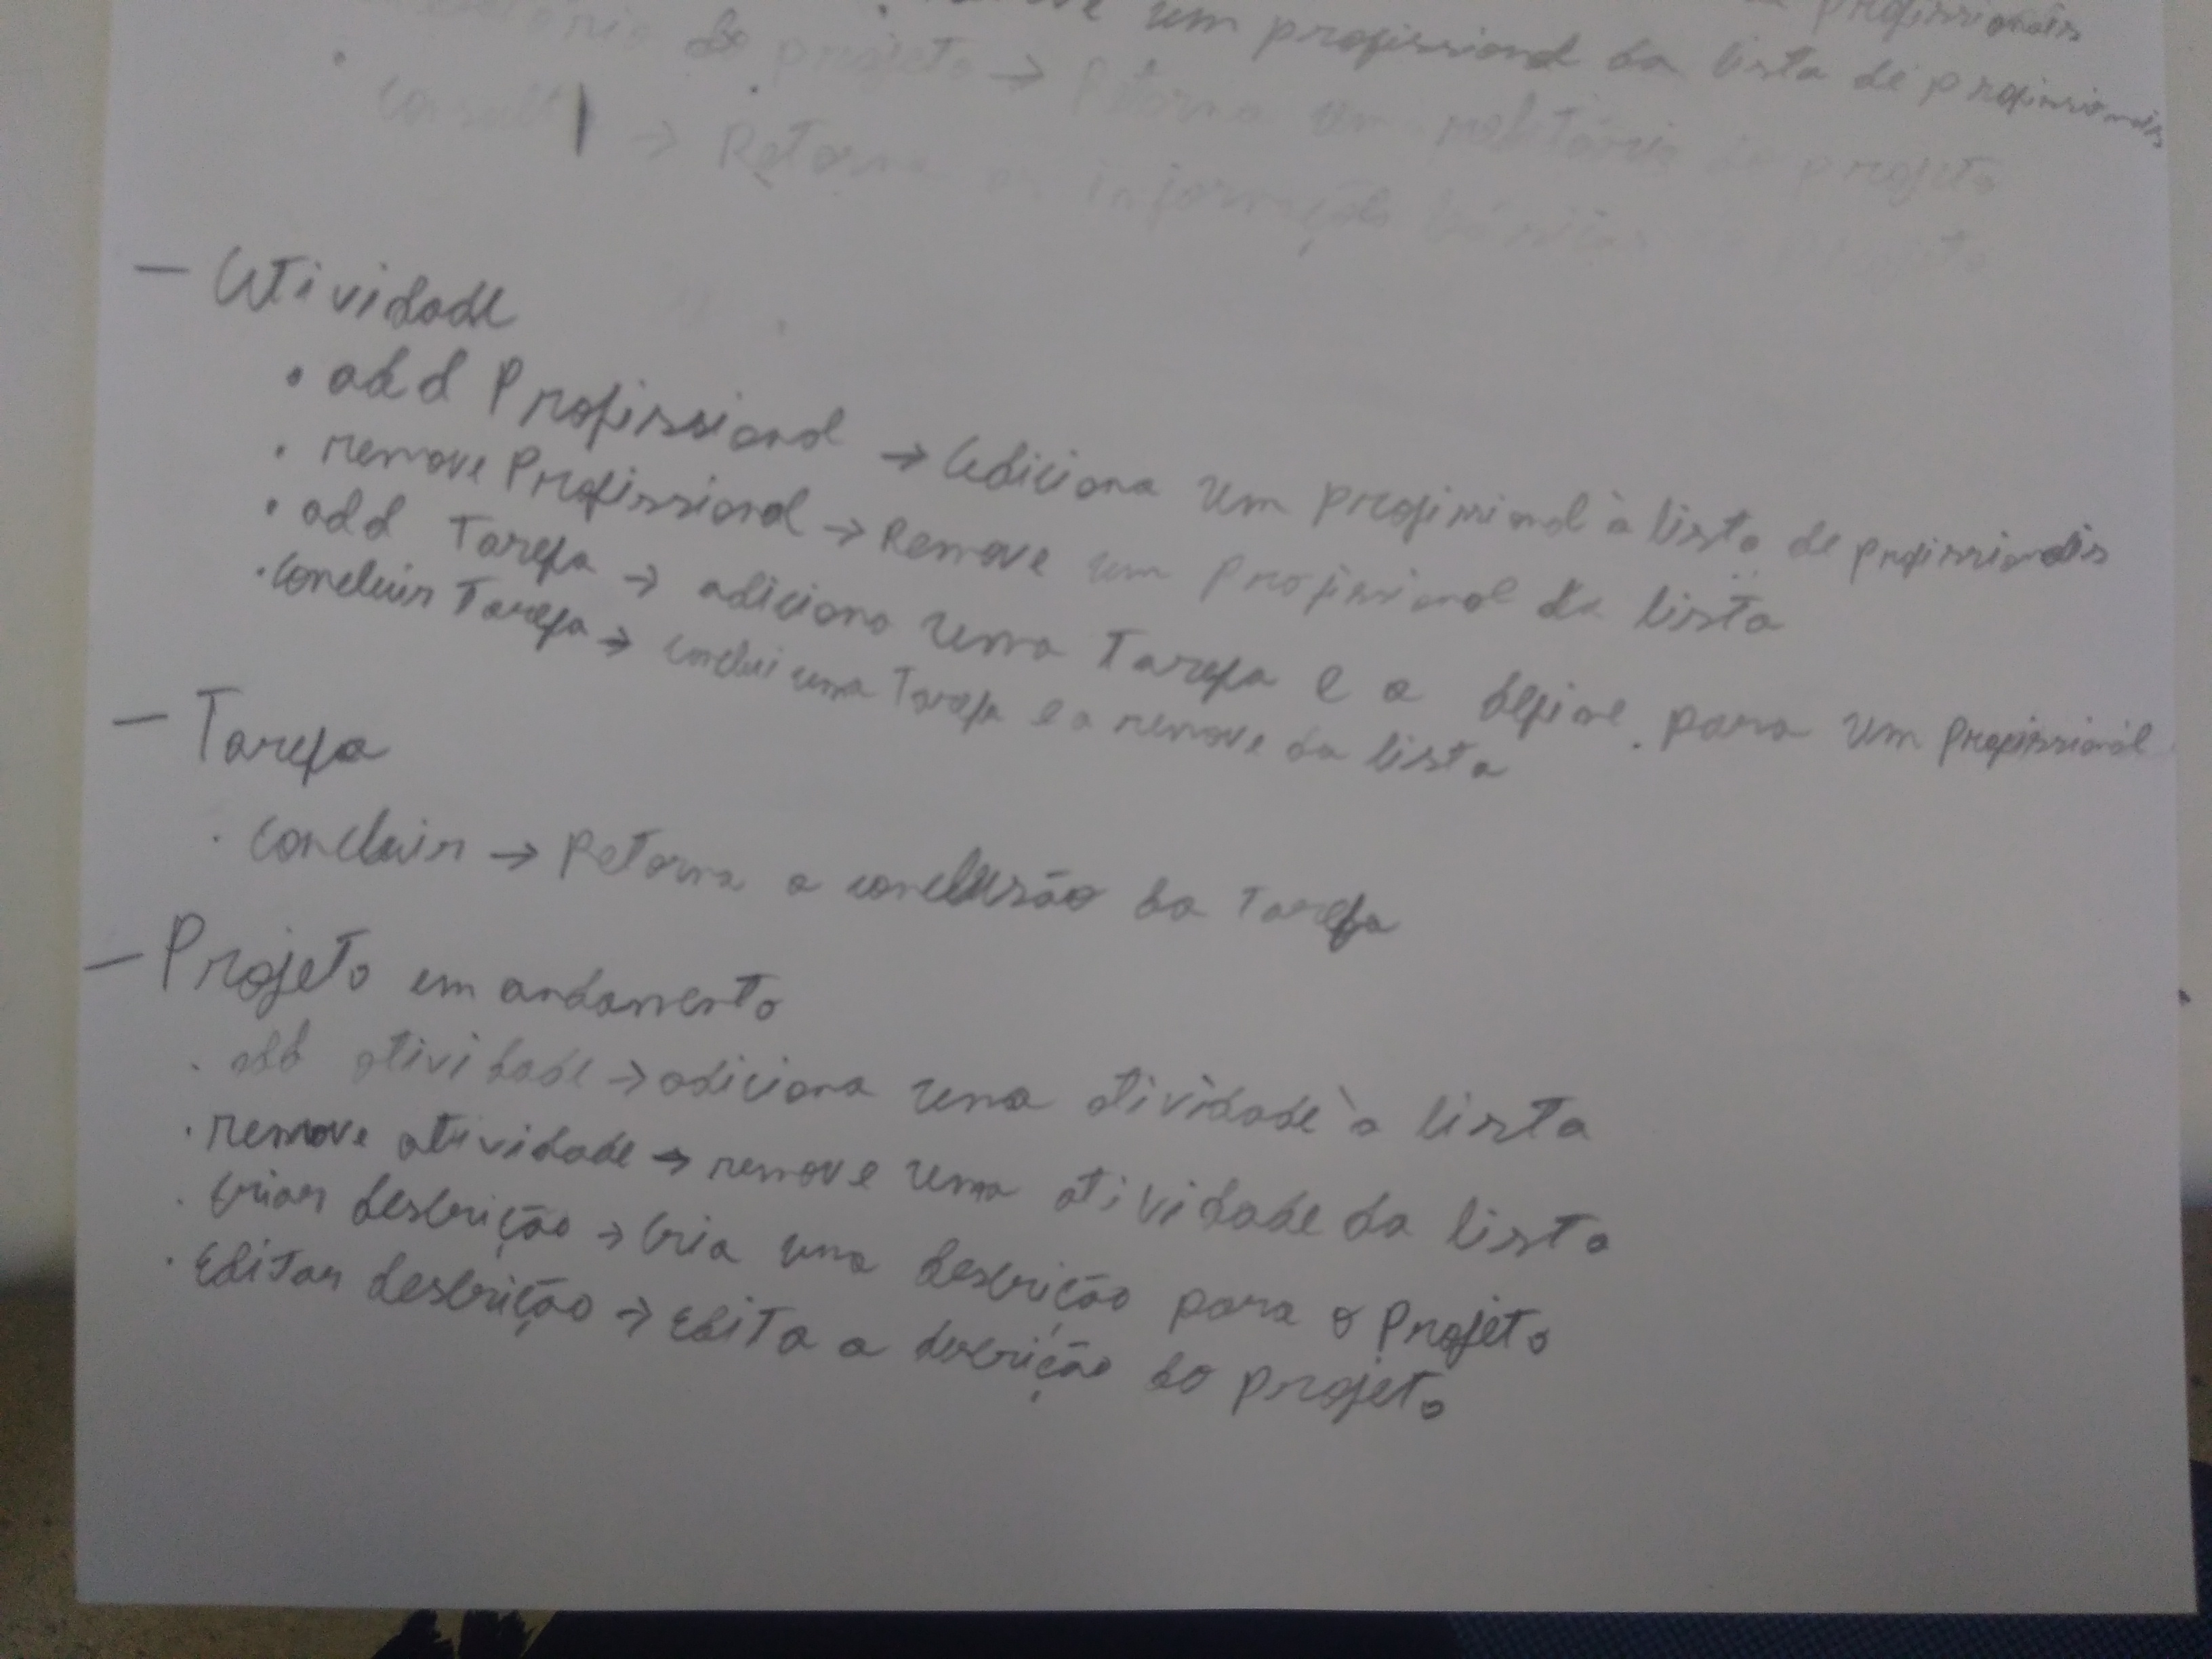 profissionais
um profissional da lista de profissionais
do projeto → Retorna um relatório do projeto
→ Retorna as informações básicas projeto
— Atividade
• add Profissional → Adiciona um profissional à lista de profissionais
• remove Profissional → Remove um profissional da lista
• add Tarefa → adiciona uma Tarefa e a define para um profissional
• concluir Tarefa → conclui uma Tarefa e a remove da lista
— Tarefa
• concluir → Retorna a conclusão da Tarefa
— Projeto em andamento
• add atividade → adiciona uma atividade à lista
• remove atividade → remove uma atividade da lista
• criar descrição → cria uma descrição para o projeto
• Editar descrição → Edita a descrição do projeto